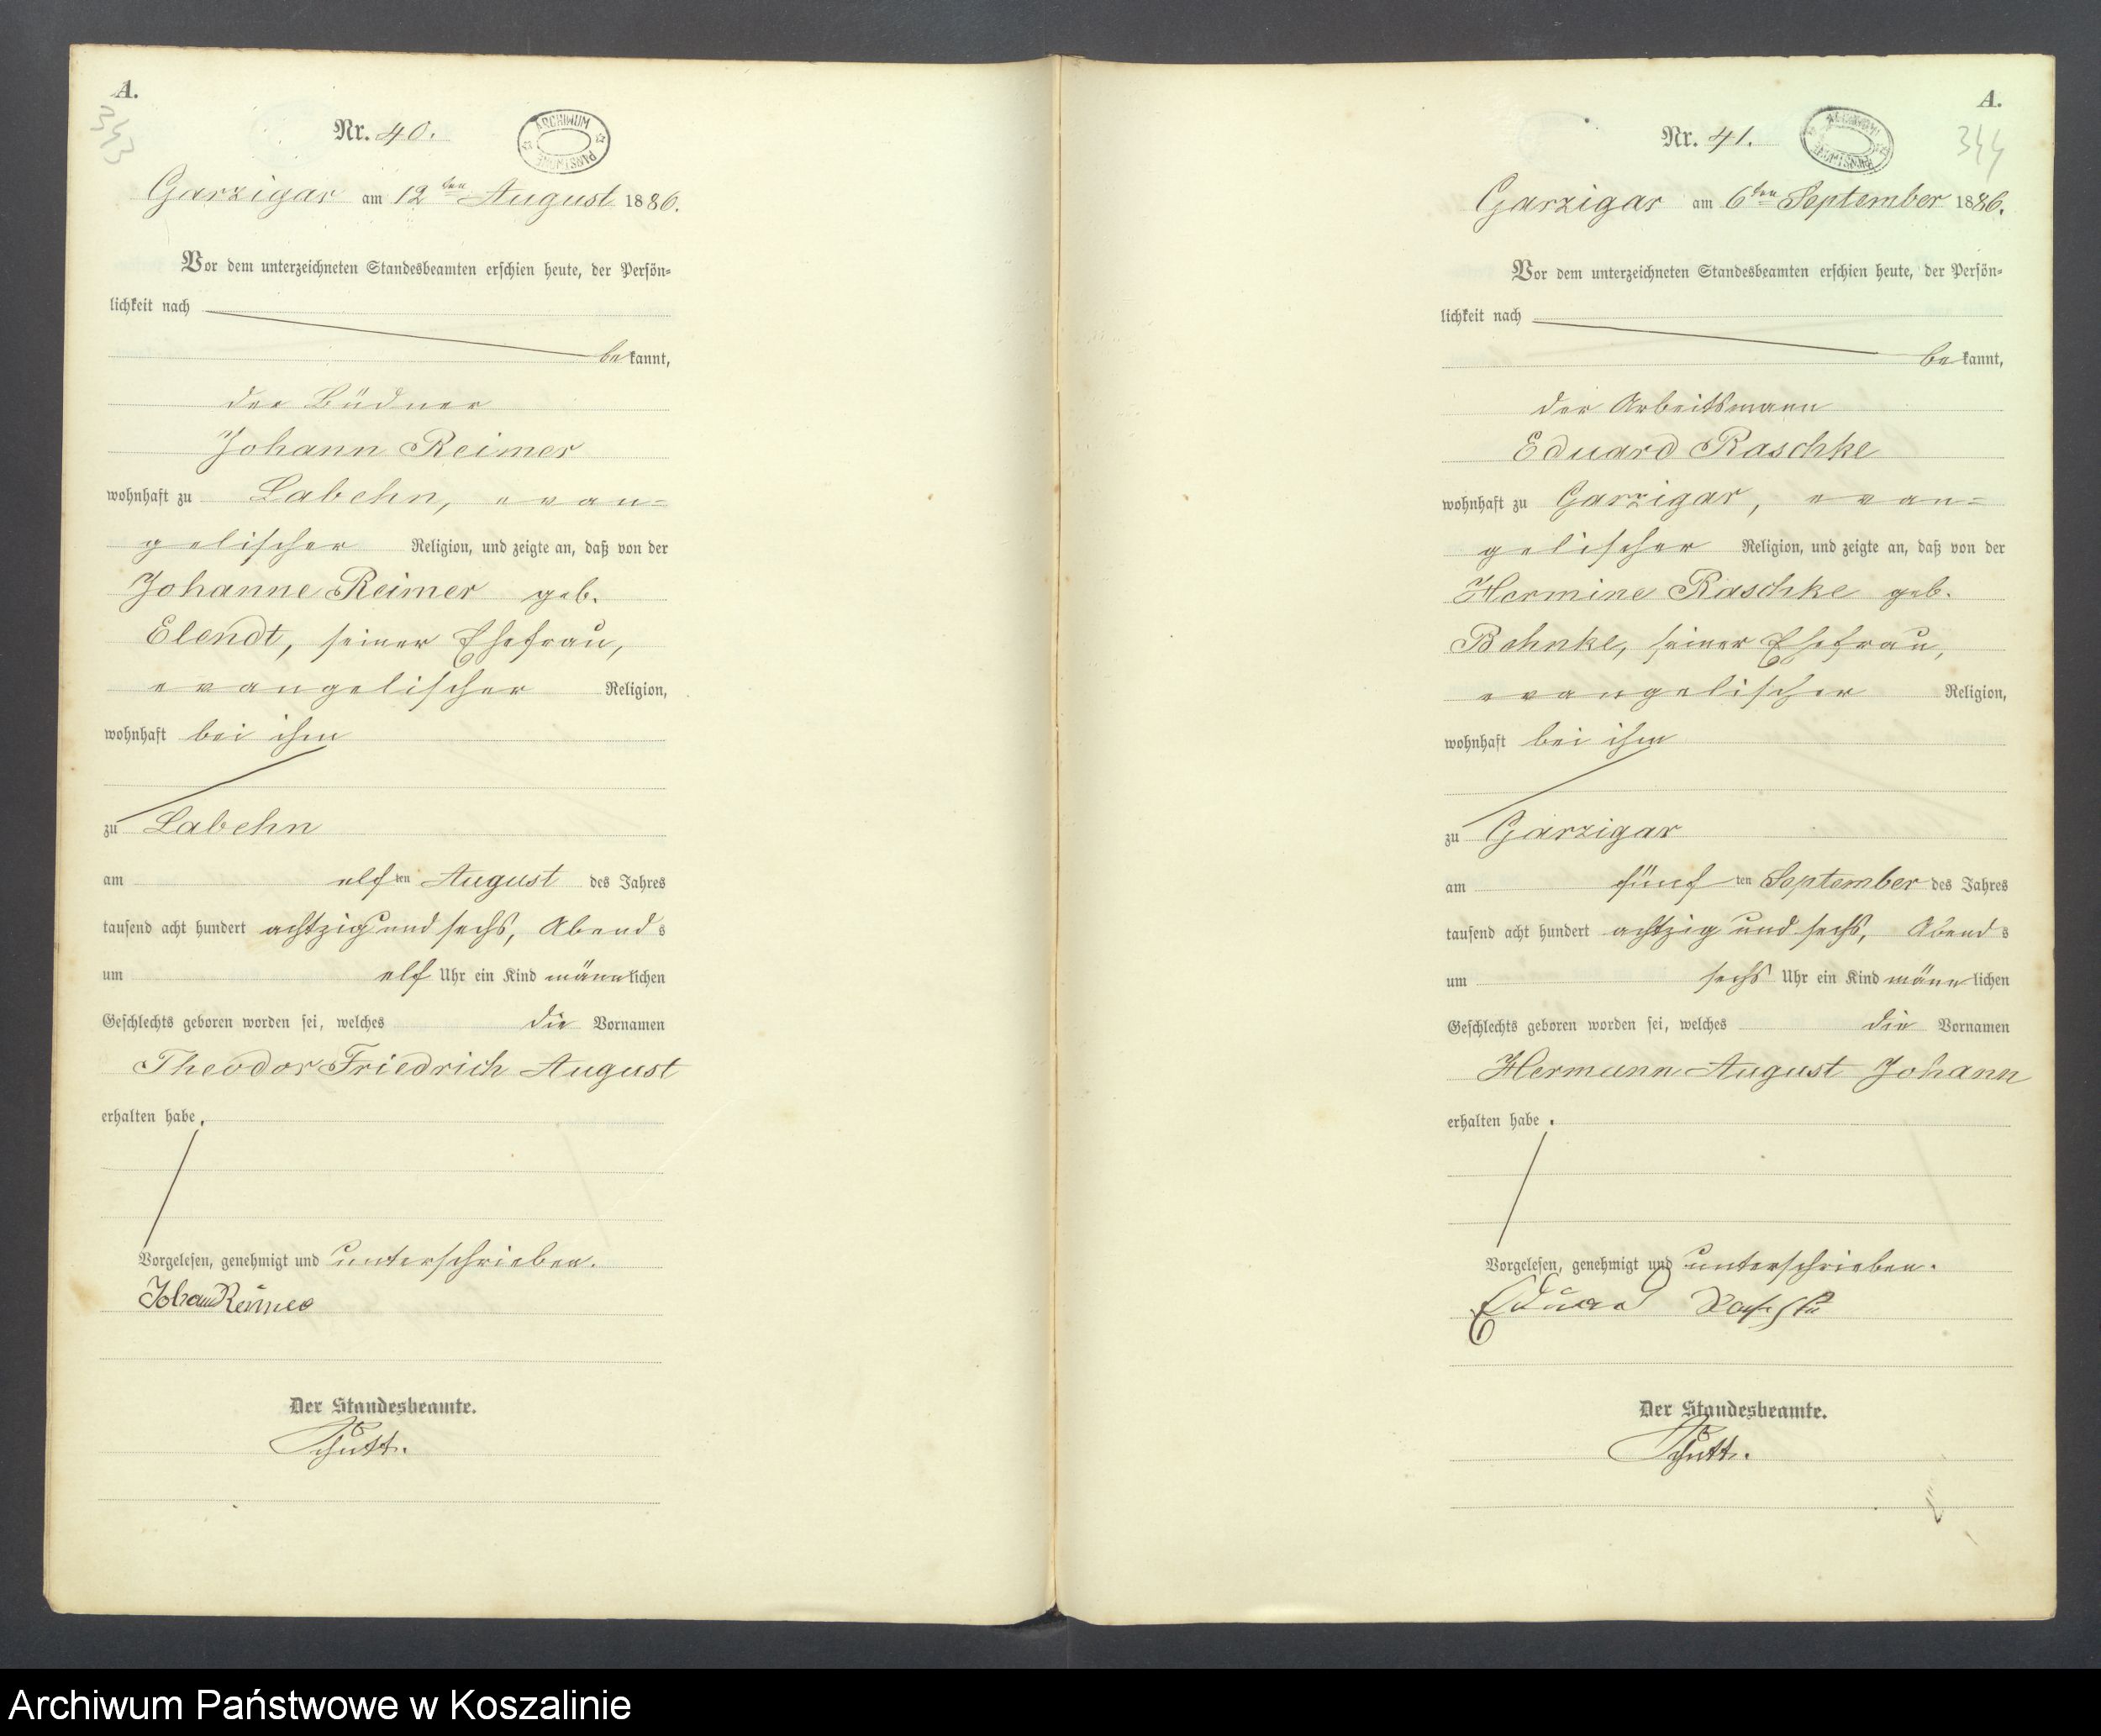 A.
343
Nr. 40.
ARCHIWUM PAŃSTWOWE
Garzigar am 12ten August 1886.
Vor dem unterzeichneten Standesbeamten erschien heute, der Persön=
lichkeit nach
bekannt,
der Büdner
Johann Reimer
wohnhaft zu Labehn, evan=
gelischer Religion, und zeigte an, daß von der
Johanne Reimer geb.
Elendt, seiner Ehefrau,
evangelischer Religion,
wohnhaft bei ihm
zu Labehn
am elften August des Jahres
tausend acht hundert achtzig und sechs, Abends
um elf Uhr ein Kind männlichen
Geschlechts geboren worden sei, welches die Vornamen
Theodor Friedrich August
erhalten habe.
Vorgelesen, genehmigt und unterschrieben.
Johann Reimer
Der Standesbeamte.
Schütt.
A.
344
Nr. 41.
ARCHIWUM PAŃSTWOWE
Garzigar am 6ten September 1886.
Vor dem unterzeichneten Standesbeamten erschien heute, der Persön=
lichkeit nach
bekannt,
der Arbeitsmann
Eduard Raschke
wohnhaft zu Garzigar, evan=
gelischer Religion, und zeigte an, daß von der
Hermine Raschke geb.
Behnke, seiner Ehefrau,
evangelischer Religion,
wohnhaft bei ihm
zu Garzigar
am fünften September des Jahres
tausend acht hundert achtzig und sechs, Abends
um sechs Uhr ein Kind männlichen
Geschlechts geboren worden sei, welches die Vornamen
Hermann August Johann
erhalten habe.
Vorgelesen, genehmigt und unterschrieben.
Eduard Raschke
Der Standesbeamte.
Schütt.
Archiwum Państwowe w Koszalinie